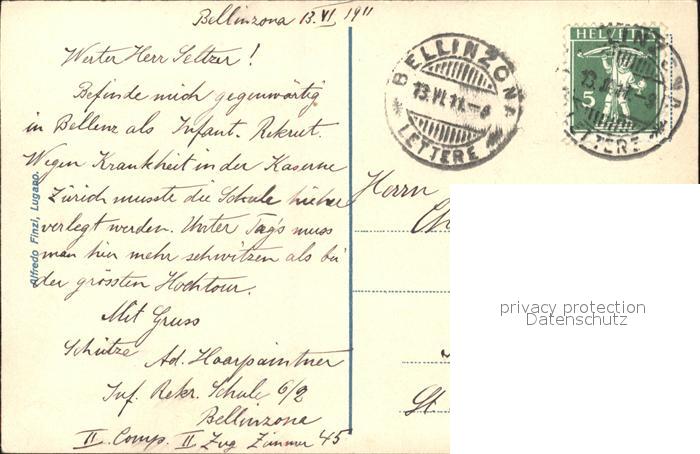 Bellinzona 13. VI. 1911
Werter Herr Seltzer!
Befinde mich gegenwärtig
in Bellenz als Infant. Rekrut.
Wegen Krankheit in der Kaserne
Zürich musste die Schule hieher
verlegt werden. Unter Tag's muss
man hier mehr schwitzen als bei
der grössten Hochtour.
Mit Gruss
Schütze Ad. Haarpaintner
Inf. Rekr. Schule 6/2
Bellinzona
II. Comp. II Zug Zimmer 45
Alfredo Finzi, Lugano.
BELLINZONA
13. VI. 11. – 8
LETTERE
HELVETIA
5
BELLINZONA
13. VI. 11. – 8
LETTERE
Herrn
St
privacy protection
Datenschutz